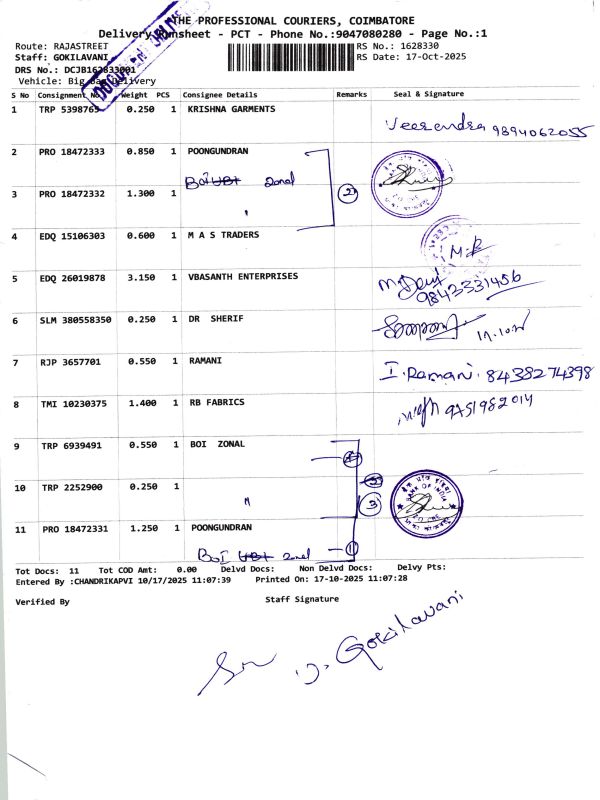 THE PROFESSIONAL COURIERS, COIMBATORE
Delivery Runsheet - PCT - Phone No.:9047080280 - Page No.:1
Route: RAJASTREET
RS No.: 1628330
Staff: GOKILAVANI
RS Date: 17-Oct-2025
DRS No.: DCJB162833001
Vehicle: Big Bag Delivery
S No Consignment No. Weight PCS Consignee Details Remarks Seal & Signature
1 TRP 5398765 0.250 1 KRISHNA GARMENTS
Veerendra 9894062055
2 PRO 18472333 0.850 1 POONGUNDRAN
BOI UBI zonal
3 PRO 18472332 1.300 1 "
2
4 EDQ 15106303 0.600 1 M A S TRADERS
5 EDQ 26019878 3.150 1 VBASANTH ENTERPRISES
M. Devi
9843331456
6 SLM 380558350 0.250 1 DR SHERIF
17.10.25
7 RJP 3657701 0.550 1 RAMANI
I. Ramani. 8438274398
8 TMI 10230375 1.400 1 RB FABRICS
9751982014
9 TRP 6939491 0.550 1 BOI ZONAL
10 TRP 2252900 0.250 1 "
3
BANK OF INDIA
11 PRO 18472331 1.250 1 POONGUNDRAN
BOI UBI zonal 1
Tot Docs: 11 Tot COD Amt: 0.00 Delvd Docs: Non Delvd Docs: Delvy Pts:
Entered By :CHANDRIKAPVI 10/17/2025 11:07:39 Printed On: 17-10-2025 11:07:28
Verified By Staff Signature
D. Gokilavani